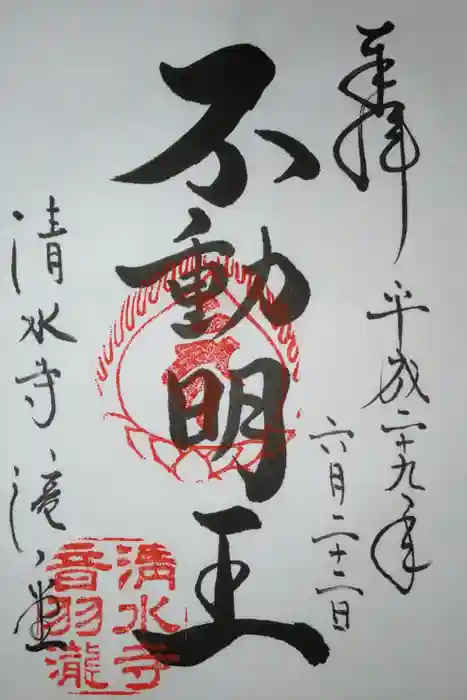 奉拝
平成二十九年
六月二十二日
不動明王
清水寺滝ノ堂
清水寺
音羽瀧